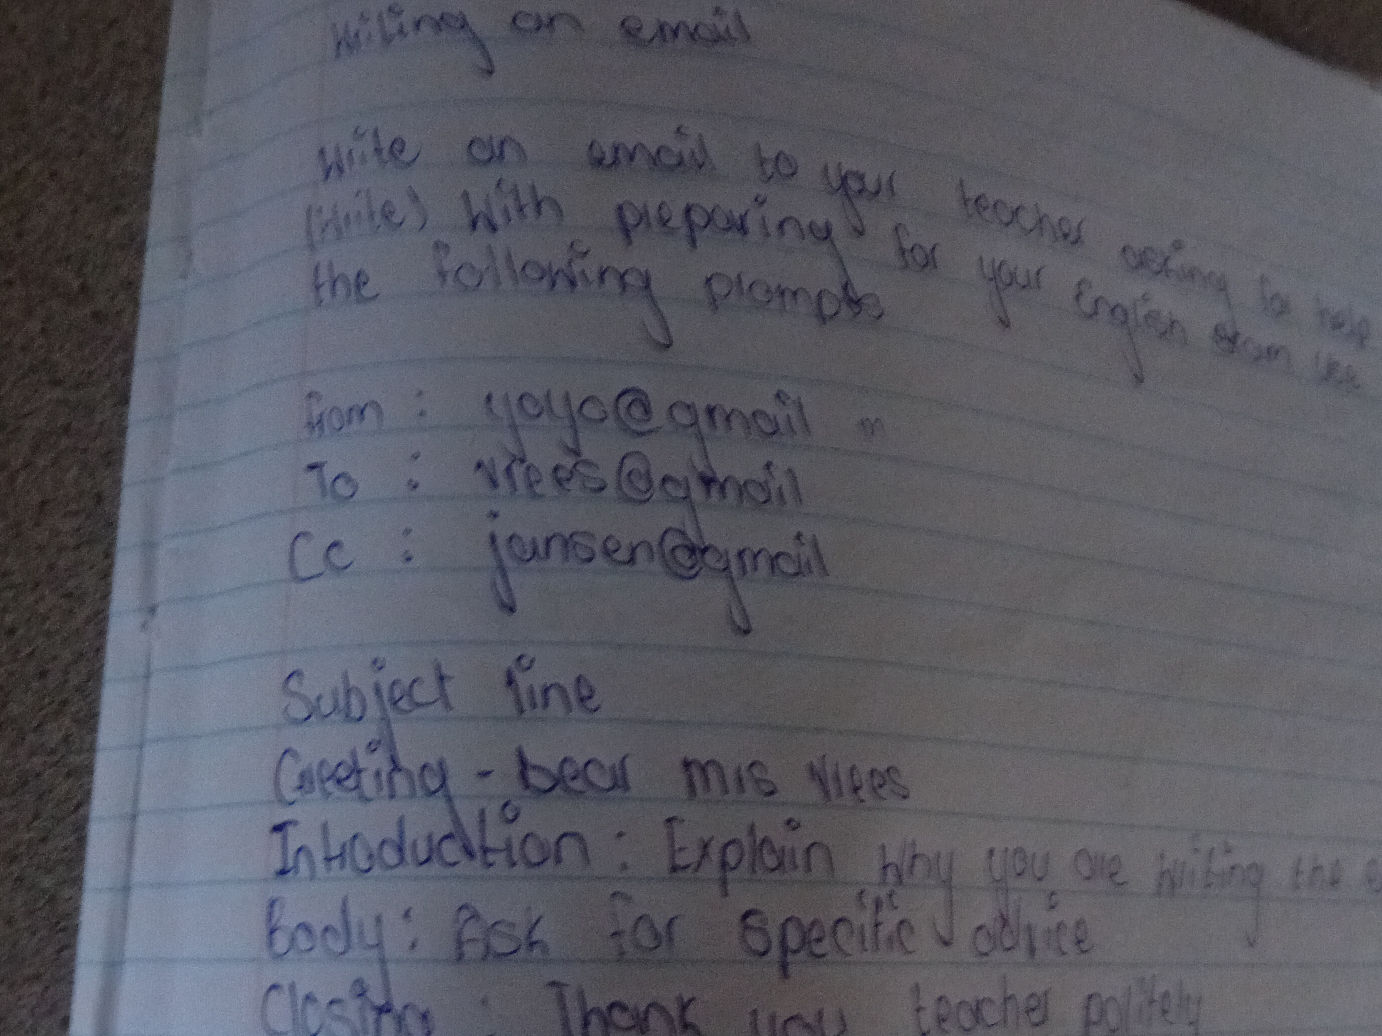 Writing an email
Write an email to your teacher asking for help
(Write) With preparing for your English exam Use
the following prompts
from : yoyo@gmail
To : vrees@gmail
Cc : jansen@gmail
Subject line
Greeting - Dear mrs Vrees
Introduction : Explain Why you are writing the
Body : Ask for specific advice
Closing : Thank you teacher politely